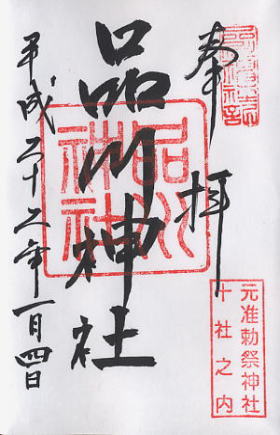 奉拝
元准勅祭神社
十社之内
品川神社
品川神社
平成二十二年一月四日